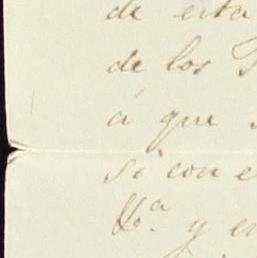 de esta
de los
á que
si con e
y en